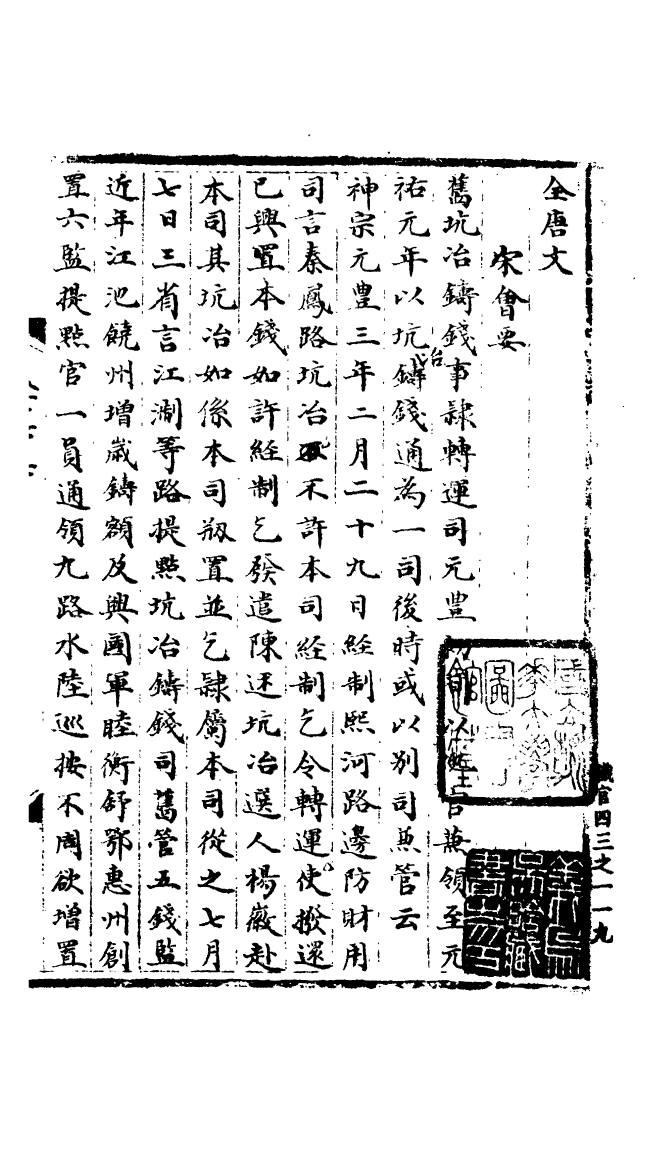 全唐文
宋會要
舊坑冶鑄錢事隸轉運司元豐初創以監官兼領至元
祐元年以坑冶鑄錢通為一司後時或以別司兼管云
神宗元豐三年二月二十九日經制熙河路邊防財用
司言秦鳳路坑冶不許本司經制乞令轉運使撥還
已興置本錢如許經制乞發遣陳述坑冶選人楊徽赴
本司其坑冶如係本司剏置並乞隸屬本司從之七月
七日三省言江淛等路提點坑冶鑄錢司舊管五錢監
近年江池饒州增歲鑄額及興國軍睦衡舒鄂惠州創
置六監提點官一員通領九路水陸巡按不周欲增置
職官四三之一一九